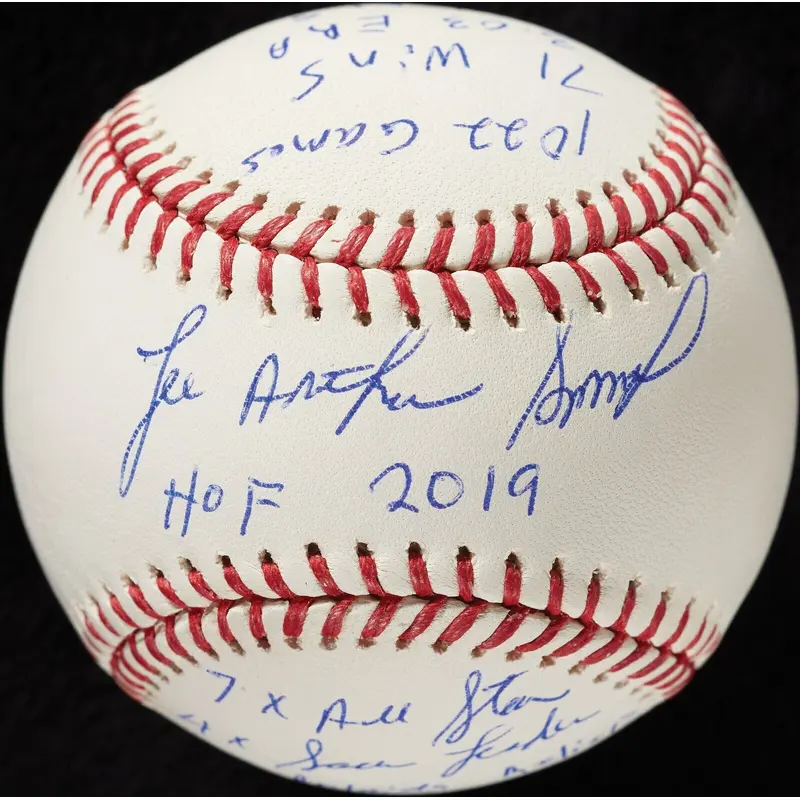 1022 Games
71 Wins
3.03 ERA
Lee Arthur Smith
HOF 2019
7 x All Star
4 x Save Leader